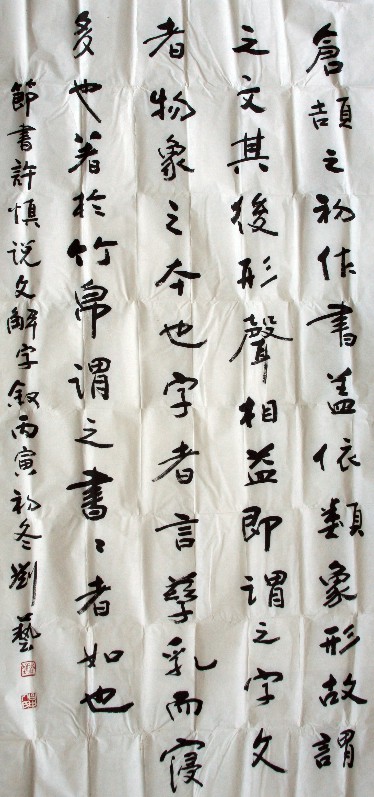 倉頡之初作書蓋依類象形故謂
之文其後形聲相益即謂之字文
者物象之本也字者言孳乳而寖
多也著於竹帛謂之書〻者如也
節書許慎说文解字叙丙寅初冬劉藝